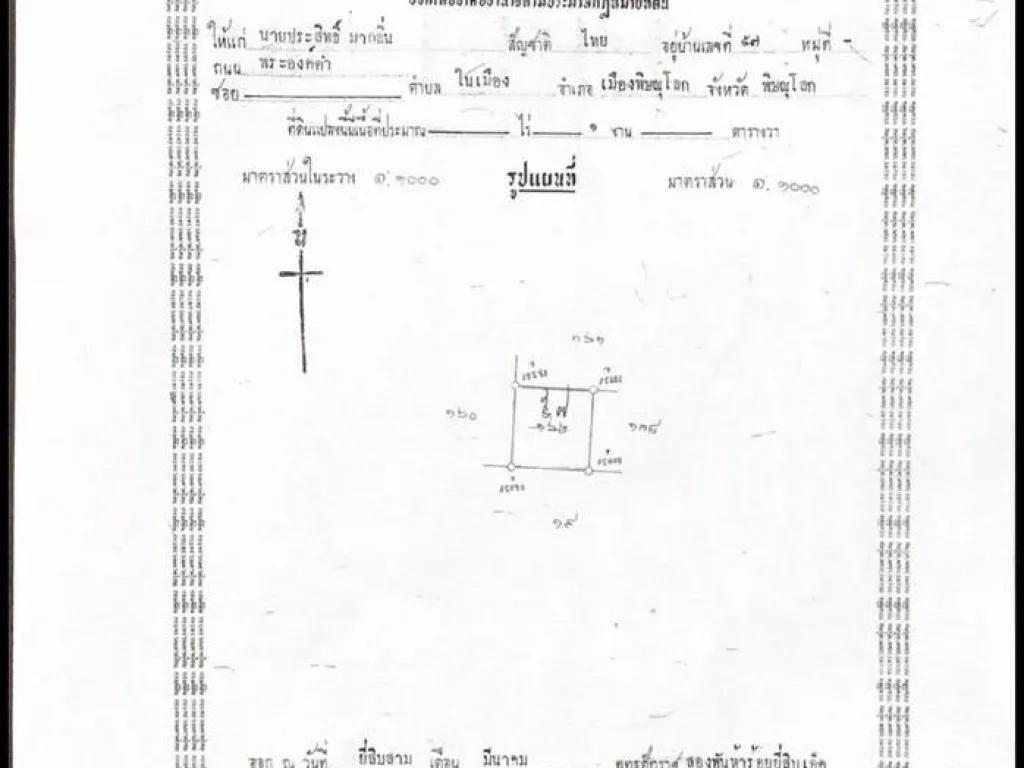 ให้แก่ นายประสิทธิ์ มากลิ่น สัญชาติ ไทย อยู่บ้านเลขที่ ๕๗ หมู่ที่ -
ถนน พระองค์ดำ
ซอย ตำบล ในเมือง อำเภอ เมืองพิษณุโลก จังหวัด พิษณุโลก
ที่ดินแปลงนี้มีเนื้อที่ประมาณ ไร่ ๑ งาน ตารางวา
มาตราส่วนในระวาง ๑:๑๐๐๐ รูปแผนที่ มาตราส่วน ๑:๑๐๐๐
๑๖๑
๑๖๐ ๑๖๒ ๑๓๘
๑๙
ออก ณ วันที่ ยี่สิบสาม เดือน มีนาคม พุทธศักราช สองพันห้าร้อยยี่สิบเอ็ด